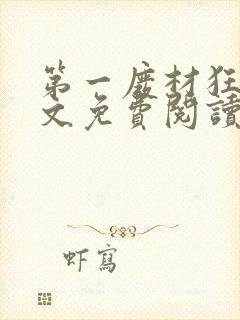 第一廢材狂
文免費閱讀
虾寫